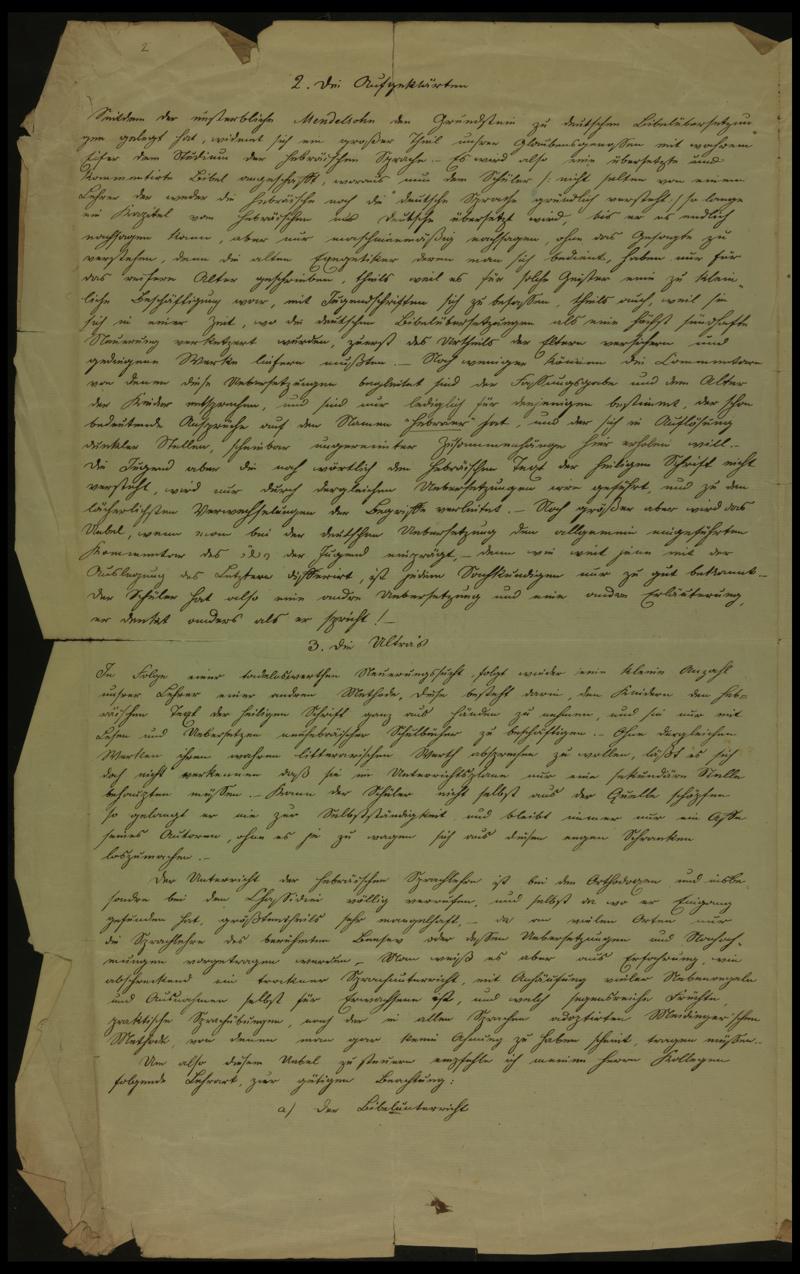 2
2. Die Aufgeklärten
Seitdem der unsterbliche Mendelsohn den Grundstein zu deutschen Bibelübersetzun-
gen gelegt hat, widmet sich ein großer Theil unsrer Glaubensgenossen mit wahrem
Eifer dem Studium der hebräischen Sprache. – Es wird also eine übersetzte und
kommentirte Bibel angeschafft, woraus nun dem Schüler /: nicht selten von einem
Lehrer der weder die hebräische noch die deutsche Sprache gründlich versteht :/ so lange
ein Kapitel vom hebräischen ins deutsche übersetzt wird, bis er es endlich
nachsagen kann, aber nur maschinenmäßig nachsagen, ohne das Gesagte zu
verstehen, denn die alten Exegetiker deren man sich bedient, haben nur für
das reifere Alter geschrieben, theils weil es für solche Geister eine zu klein-
liche Beschäftigung war, mit Jugendschriften sich zu befassen, theils auch, weil sie
sich in einer Zeit, wo die deutschen Bibelübersetzungen als eine höchst sündhafte
Neuerung verketzert wurden, zuerst des Urtheils der Eltern versichern und
gediegene Werke liefern mußten. – Noch weniger können die Commentare
von denen diese Uebersetzungen begleitet sind der Fassungsgabe und dem Alter
der Kinder entsprechen, und sind nur lediglich für denjenigen bestimmt, der schon
bedeutende Ansprüche auf den Namen "Hebräer" hat, und der sich in Auflösung
dunkler Stellen, scheinbar ungereimter Zusammenhänge hier erholen will. –
Die Jugend aber die noch wörtlich den hebräischen Text der heiligen Schrift nicht
versteht, wird nur durch dergleichen Uebersetzungen irre geführt, und zu den
lächerlichsten Verwechselungen der Begriffe verleitet. – Noch größer aber wird das
Uebel, wenn man bei der deutschen Uebersetzung den allgemein eingeführten
Kommentar des der Jugend einprägt, – denn wie weit jene mit der
Auslegung des Letztern differirt, ist jedem Sachkundigen nur zu gut bekannt –
der Schüler hat also eine andre Uebersetzung und eine andre Erläuterung,
er denkt anders als er spricht! –
3. Die Ultra's
In Folge einer tadelnswerthen Neuerungssucht folgt wieder eine kleine Anzahl
unsrer Lehrer einer andren Methode, diese besteht darin, den Kindern den heb-
räischen Text der heiligen Schrift ganz aus Händen zu nehmen, und sie nur mit
Lesen und Uebersetzen neuhebräischer Schulbücher zu beschäftigen. – Ohne dergleichen
Werken ihren wahren litterarischen Werth absprechen zu wollen, läßt es sich
doch nicht verkennen daß sie im Unterrichtsplane nur eine sekundäre Stelle
behaupten müssen. – Kann der Schüler nicht selbst aus der Quelle schöpfen
so gelangt er nie zur Selbstständigkeit und bleibt immer nur ein Affe
seines Autoren, ohne es je zu wagen sich aus diesen engen Schranken
loszumachen. –
Der Unterricht der hebräischen Sprachlehre ist bei den Orthodoxen und insbe-
sondre bei den Chassidäi völlig verrufen, und selbst da wo er Eingang
gefunden hat, größtentheils sehr mangelhaft, – da an vielen Orten nur
die Sprachlehre des berühmten Bensev oder dessen Uebersetzungen und Nachah-
mungen vorgetragen werden. – Man weiß es aber aus Erfahrung, wie
abschreckend ein trockner Sprachunterricht, mit Anhäufung vieler Nebenregeln
und Ausnahmen selbst für Erwachsene ist, und welch segensreiche Früchte,
praktische Sprachübungen, nach der in allen Sprachen adoptirten Meidinger'schen
Methode, von denen man gar keine Ahnung zu haben scheint, tragen müssen. –
Um also diesem Uebel zu steuern empfehle ich meinen Herrn Kollegen
folgende Lehrart, zur gütigen Beachtung:
a/ Der Bibelunterricht